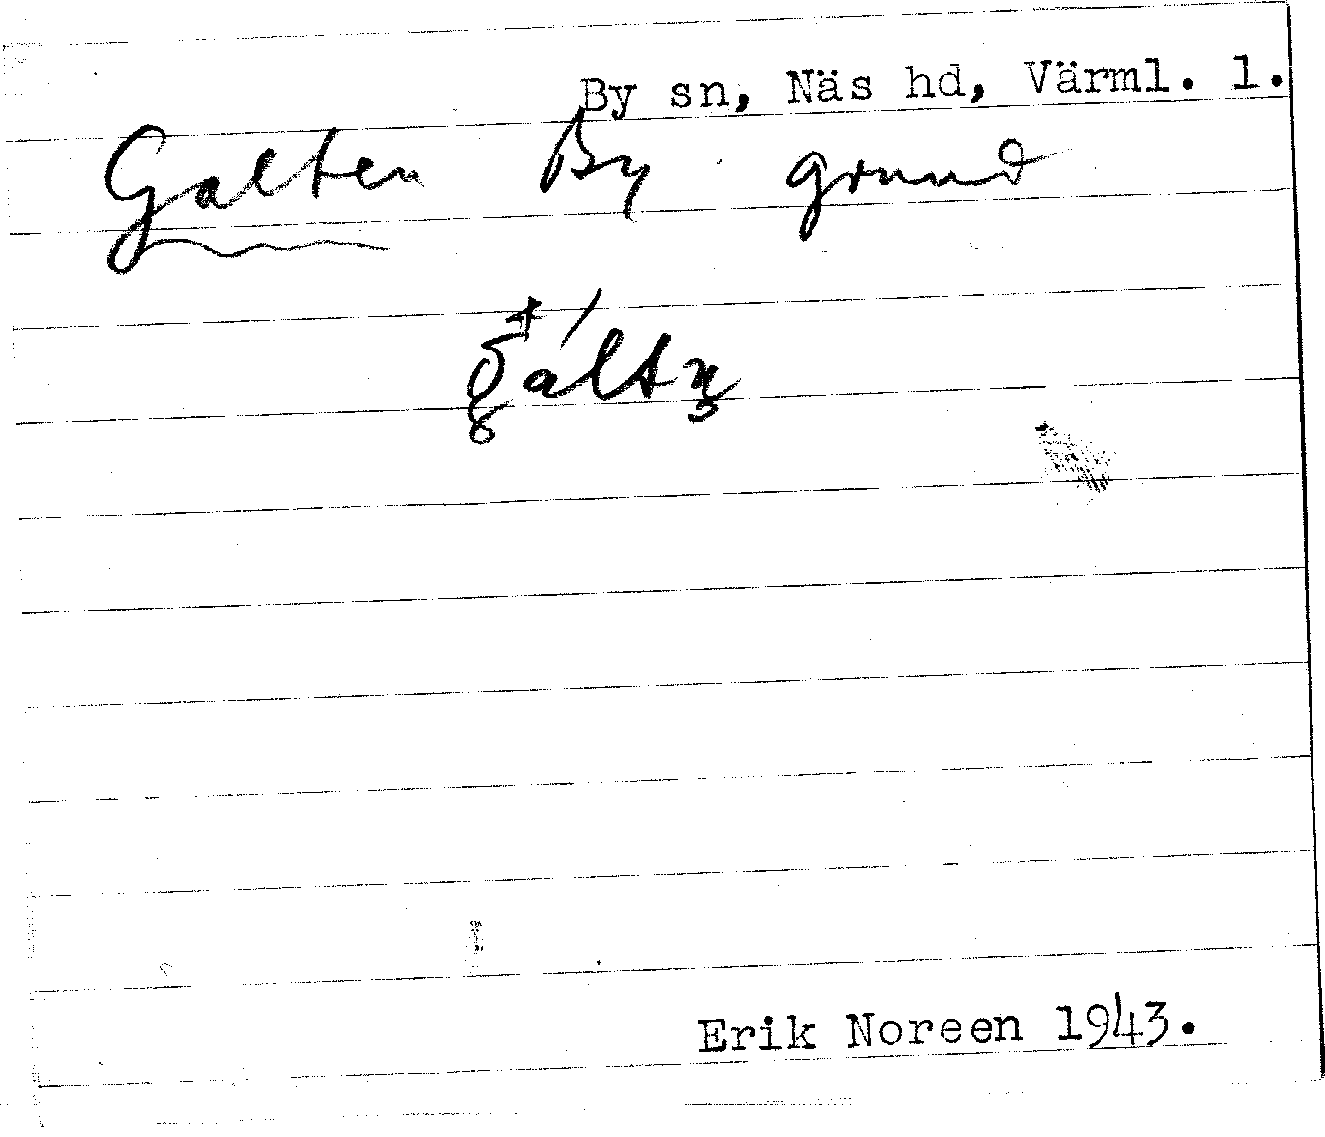 By sn, Näs hd, Värml. l.
Galten By grund
gáltn̥
Erik Noreen 1943.